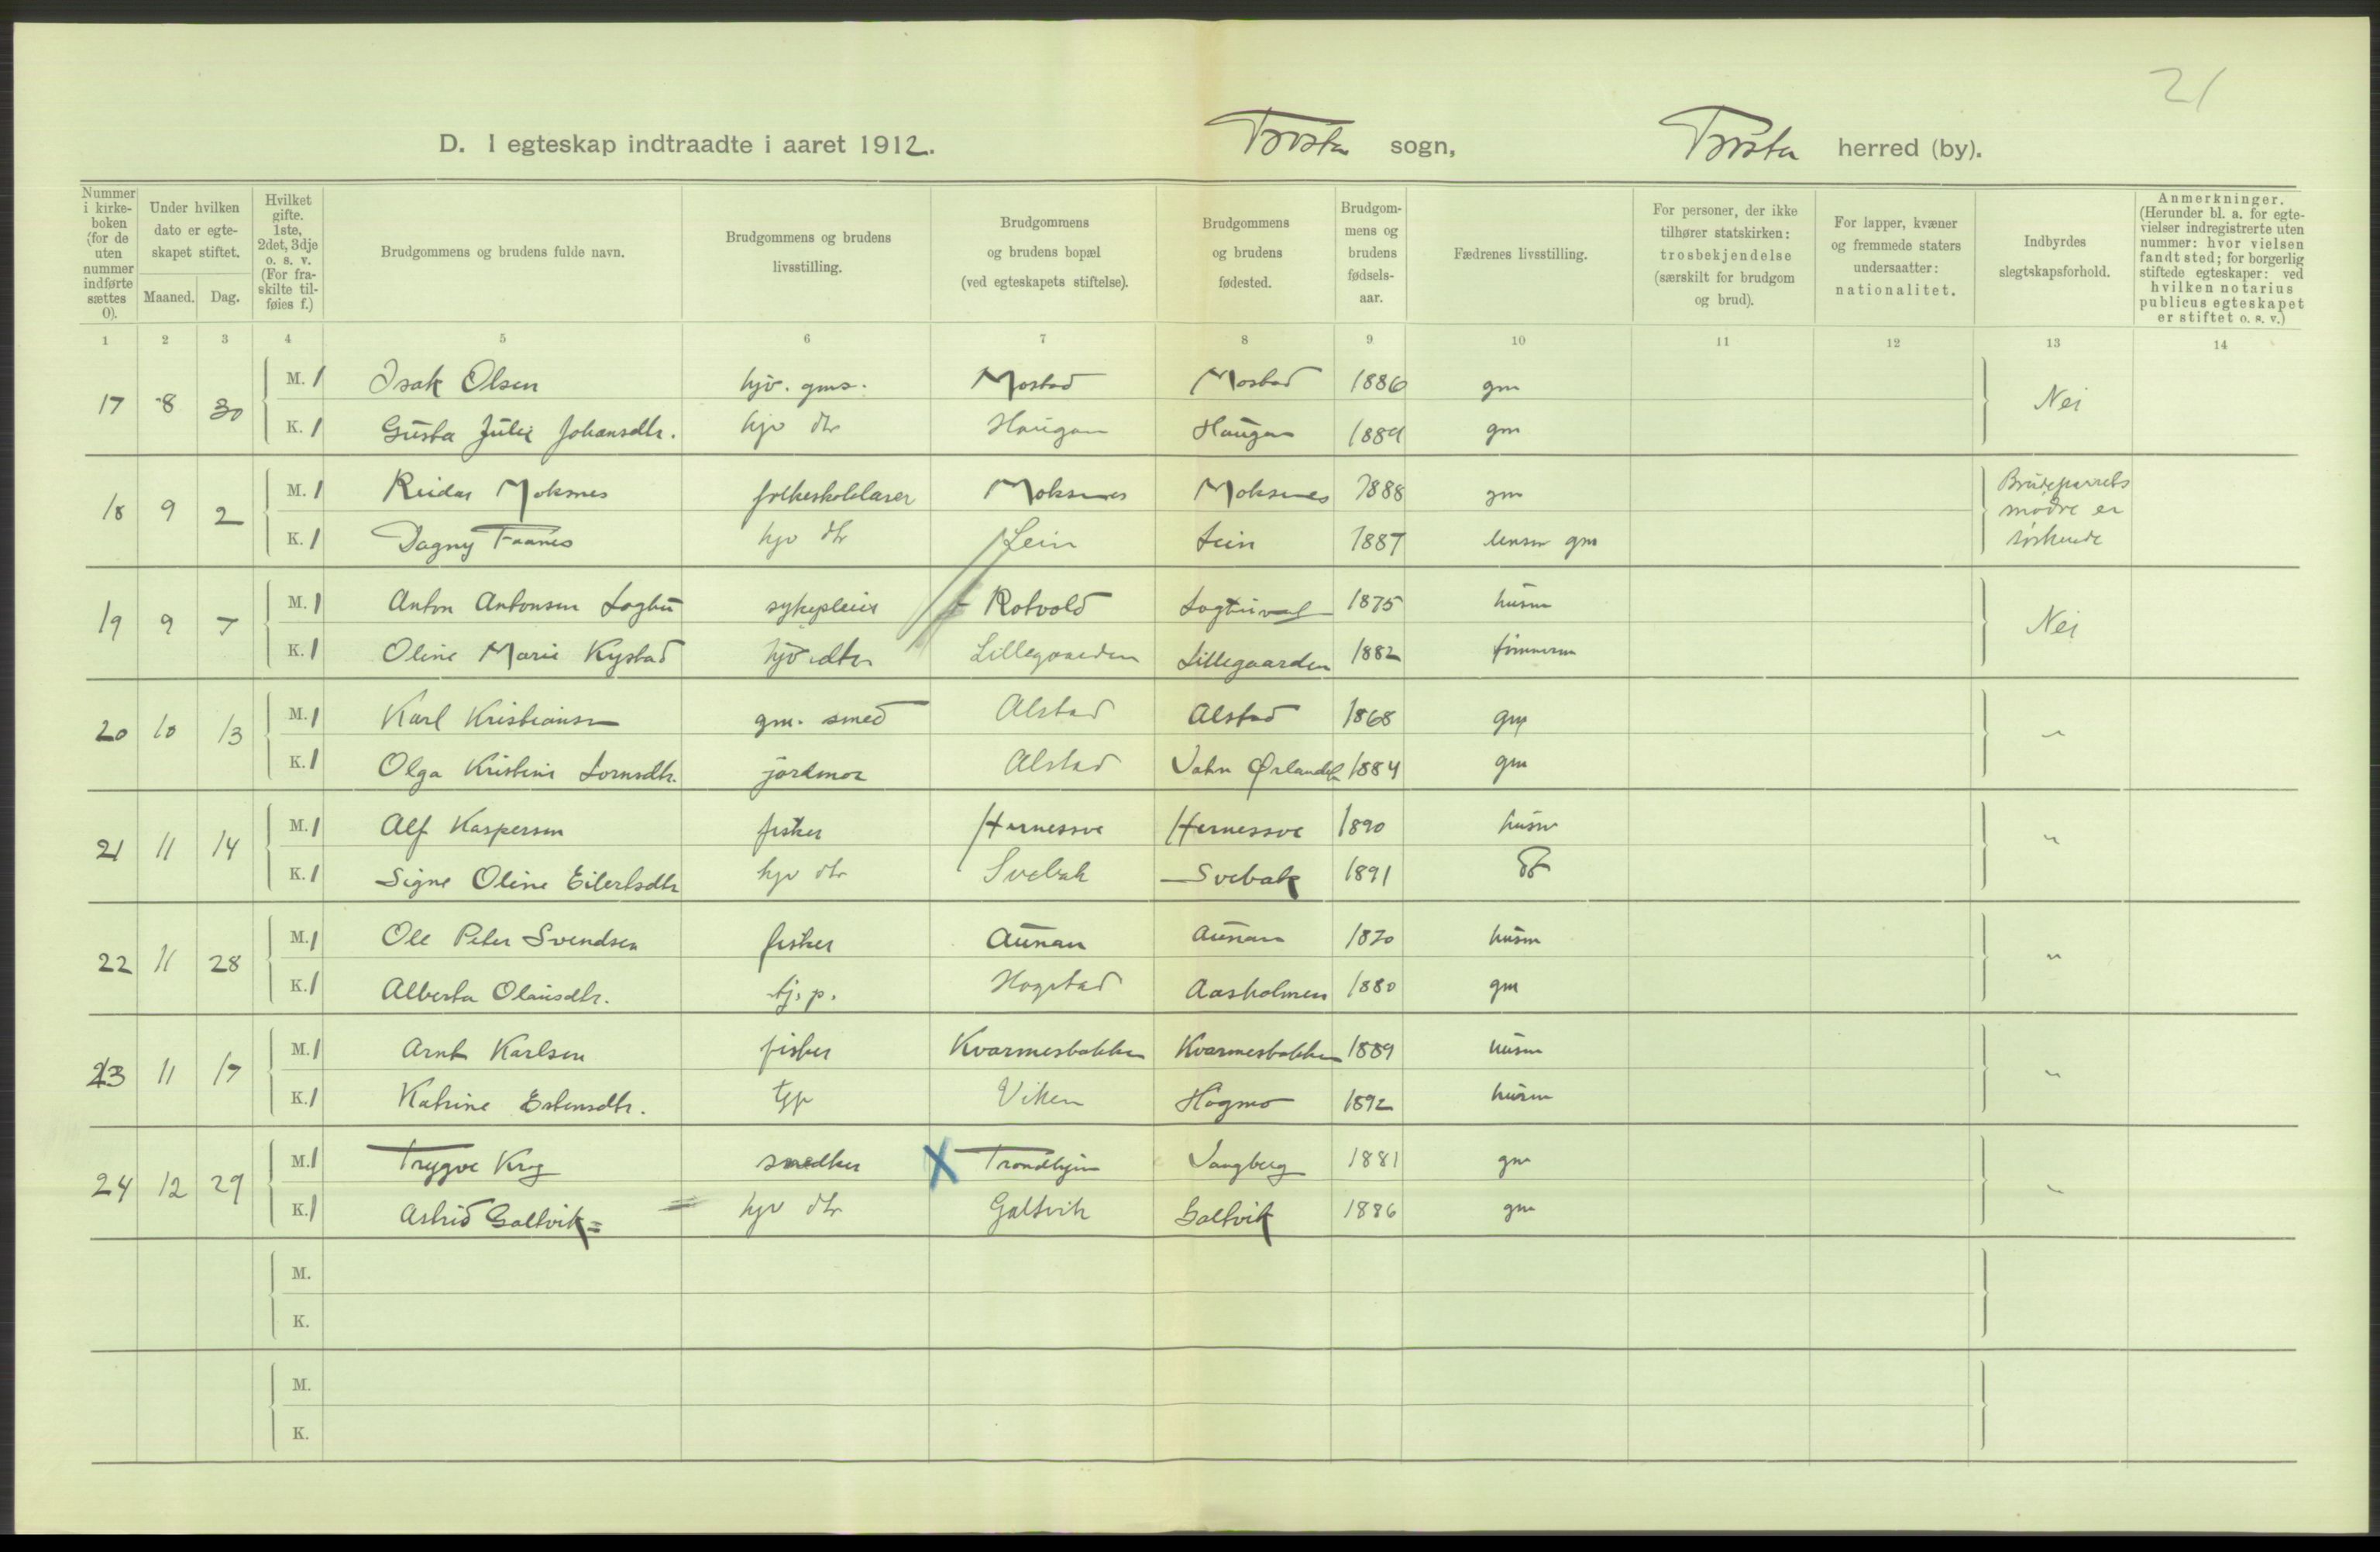 21
D. I egteskap indtraadte i aaret 1912. sogn, herred (by).
Nummer i kirkeboken (for de uten nummer indførte sættes 0).
Under hvilken dato er egteskapet stiftet.
Maaned. Dag.
Hvilket gifte. 1ste, 2det, 3dje o. s. v. (For fraskilte tilføies f.)
Brudgommens og brudens fulde navn.
Brudgommens og brudens livsstilling.
Brudgommens og brudens bopæl (ved egteskapets stiftelse).
Brudgommens og brudens fødested.
Brudgommens og brudens fødselsaar.
Fædrenes livsstilling.
For personer, der ikke tilhører statskirken: trosbekjendelse (særskilt for brudgom og brud).
For lapper, kvæner og fremmede staters undersaatter: nationalitet.
Indbyrdes slegtskapsforhold.
Anmerkninger. (Herunder bl. a. for egtevielser indregistrerte uten nummer: hvor vielsen fandt sted; for borgerlig stiftede egteskaper: ved hvilken notarius publicus egteskapet er stiftet o. s. v.)
1 2 3 4 5 6 7 8 9 10 11 12 13 14
17 8 30 M. 1 Isak Olsen hjv. gms. Mostad Mostad 1886 gm Nei
K. 1 Gusta Julie Johansdtr. hjv dtr Haugan Haugan 1889 gm
18 9 2 M. 1 Reidar Moksnes folkeskolelærer Moksnes Moksnes 1888 gm Brudeparrets mødre er søskende
K. 1 Dagny Faanes hjv dtr Lein Lein 1887 lensm gm
19 9 7 M. 1 Anton Antonsen Logtu sykepleier Rotvold 1875 husm Nei
K. 1 Oline Marie Kystad hjv dtr Lillegaarden Lillegaarden 1882 tømmerm
20 10 13 M. 1 Karl Kristiansen gm. smed Alstad Alstad 1868 gm "
K. 1 Olga Kristine jordmor Alstad 1884 gm
21 11 14 M. 1 Alf Kaspersen fisker Hernessve Hernessve 1890 husm "
K. 1 Signe Oline Eilertsdtr hjv dtr Svebak Svebak 1891
22 11 28 M. 1 Ole Peter Svendsen fisker Aunan Aunan 1870 husm "
K. 1 Alberta Olausdtr. tj. p. Hogstad Aasholmen 1880 gm
23 11 17 M. 1 Arnt Karlsen fisker Kvarmesbakken Kvarmesbakken 1889 husm "
K. 1 Katrine Estensdtr. tjp Viken Hogmo 1892 husm
24 12 29 M. 1 Trygve Krog snedker X Trondhjem Vangberg 1881 gm "
K. 1 Astrid Galtvik = hjv dtr Galtvik Galtvik 1886 gm
M.
K.
M.
K.